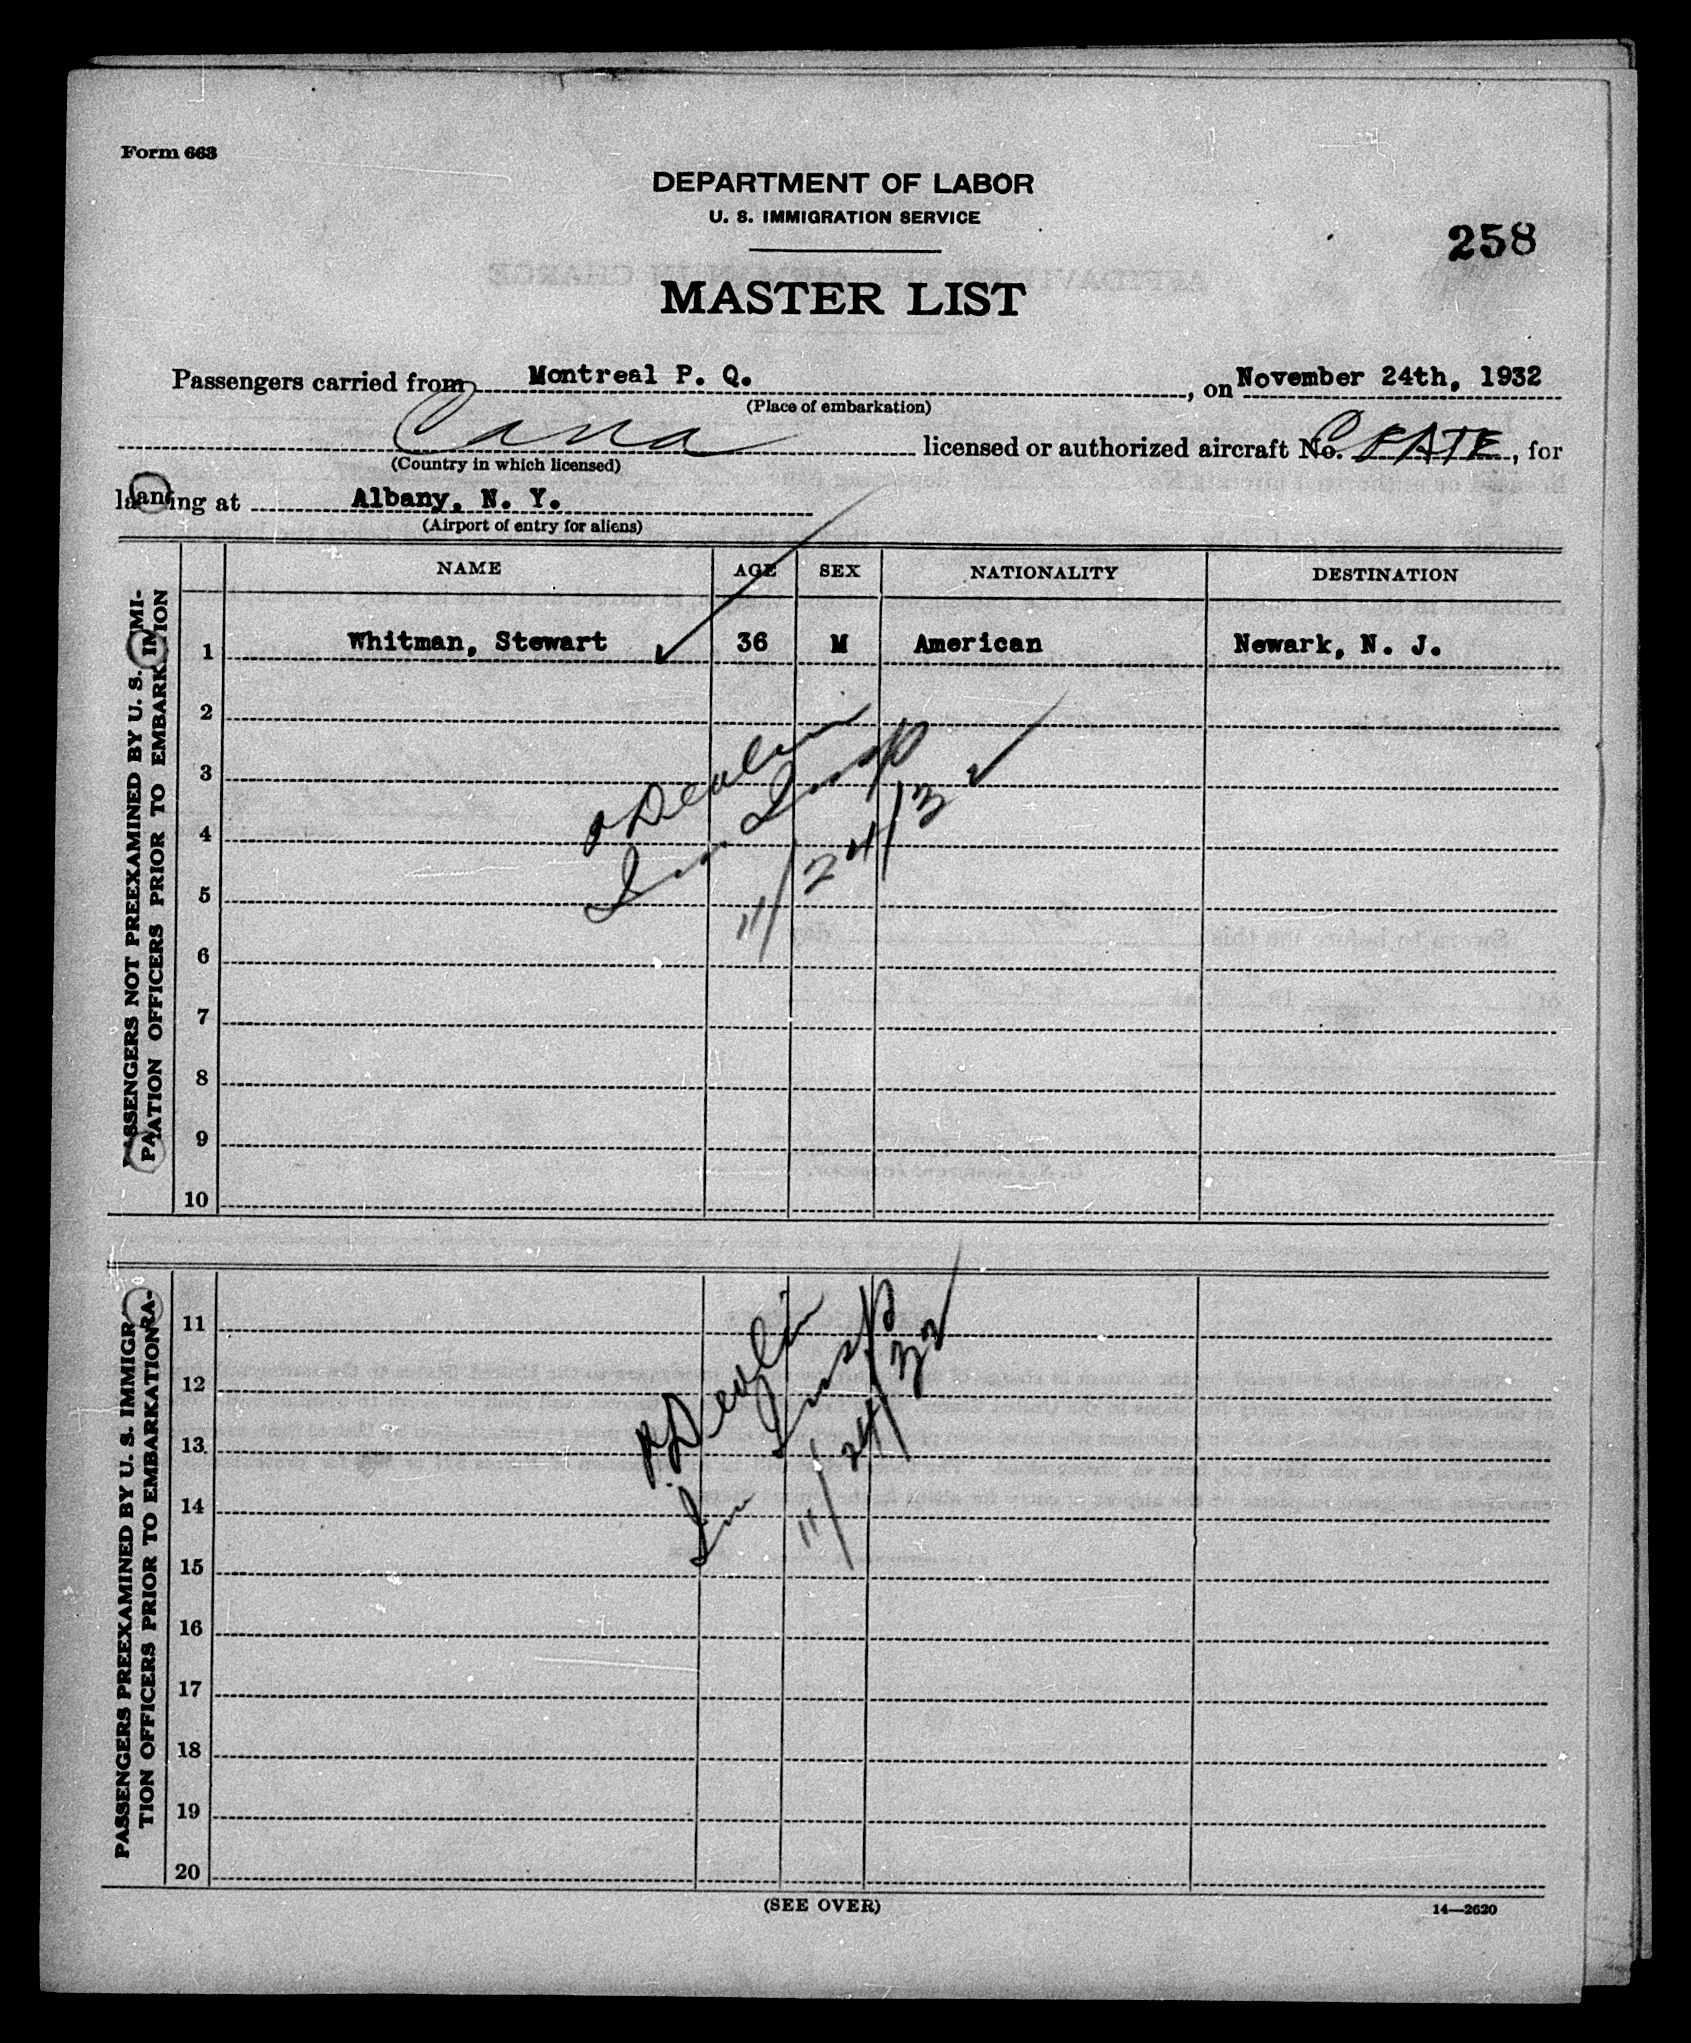 Form 663
DEPARTMENT OF LABOR
U. S. IMMIGRATION SERVICE
258
MASTER LIST
Passengers carried from Montreal P. Q. , on November 24th, 1932
(Place of embarkation)
Cana licensed or authorized aircraft No. CFATE, for
(Country in which licensed)
landing at Albany, N. Y.
(Airport of entry for aliens)
NAME AGE SEX NATIONALITY DESTINATION
PASSENGERS NOT PREEXAMINED BY U. S. IMMI-
1 Whitman, Stewart 36 M American Newark, N. J.
2
3
4
5
6
7
8
9
10
Devlin
Imm Insp
11/24/32
PASSENGERS PREEXAMINED BY U. S. IMMIGRA-
TION OFFICERS PRIOR TO EMBARKATION
11
12
13
14
15
16
17
18
19
20
Devlin
Imm Insp
11/24/32
(SEE OVER)
14—2620